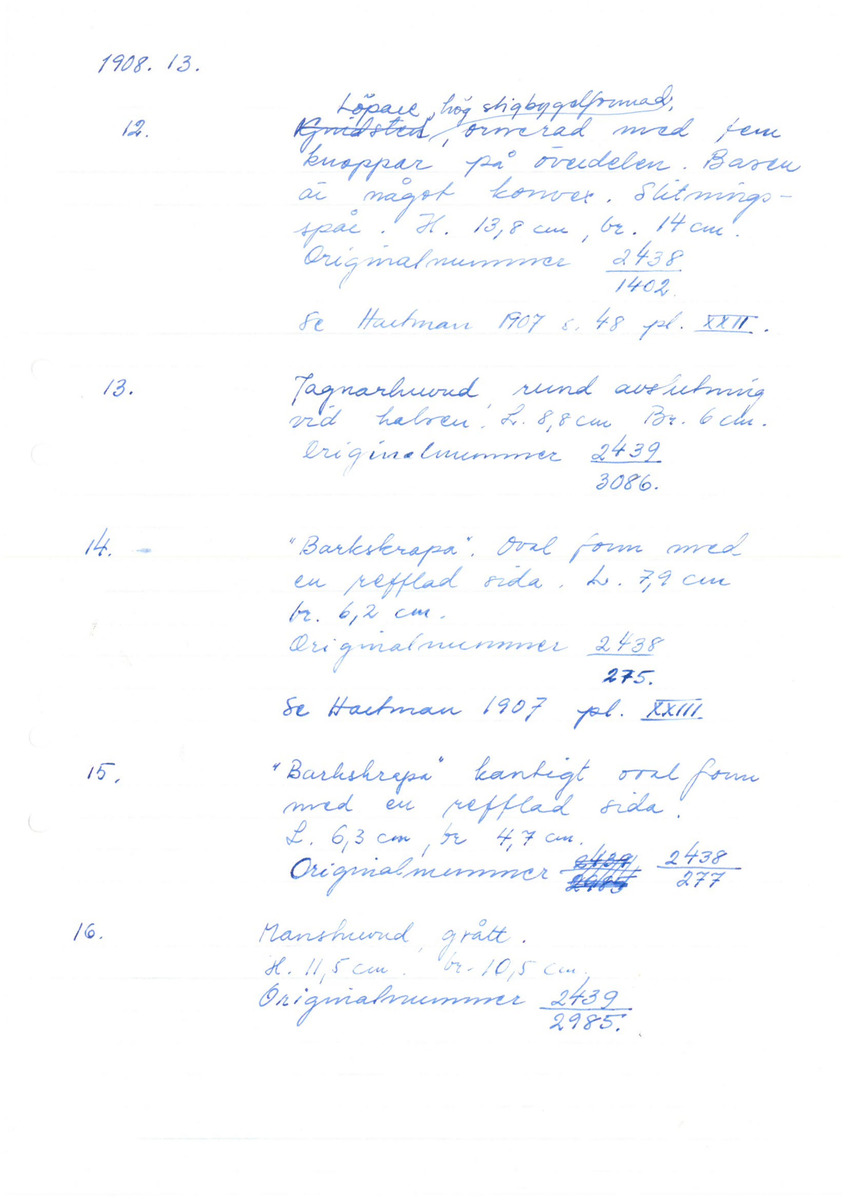 1908. 13.
Löpare, hög stigbygelformad,
12. Gnidsten, ornerad med fem
knoppar på överdelen. Basen
är något konvex. Slitnings-
spår. H. 13,8 cm, br. 14 cm.
Originalnummer 2438
1402.
Se Hartman 1907 s. 48 pl. XXII.
13. Jagnarhuvud, rund avslutning
vid halsen. L. 8,8 cm Br. 6 cm.
Originalnummer 2439
3086.
14. - "Barkskrapa". Oval form med
en refflad sida. L. 7,9 cm
br. 6,2 cm.
Originalnummer 2438
275.
Se Hartman 1907 pl. XXIII
15. "Barkskrapa" kantigt oval form
med en refflad sida.
L. 6,3 cm, br 4,7 cm.
Originalnummer 2439 2438
2985 277
16. Manshuvud, grått.
H. 11,5 cm. br. 10,5 cm.
Originalnummer 2439
2985.